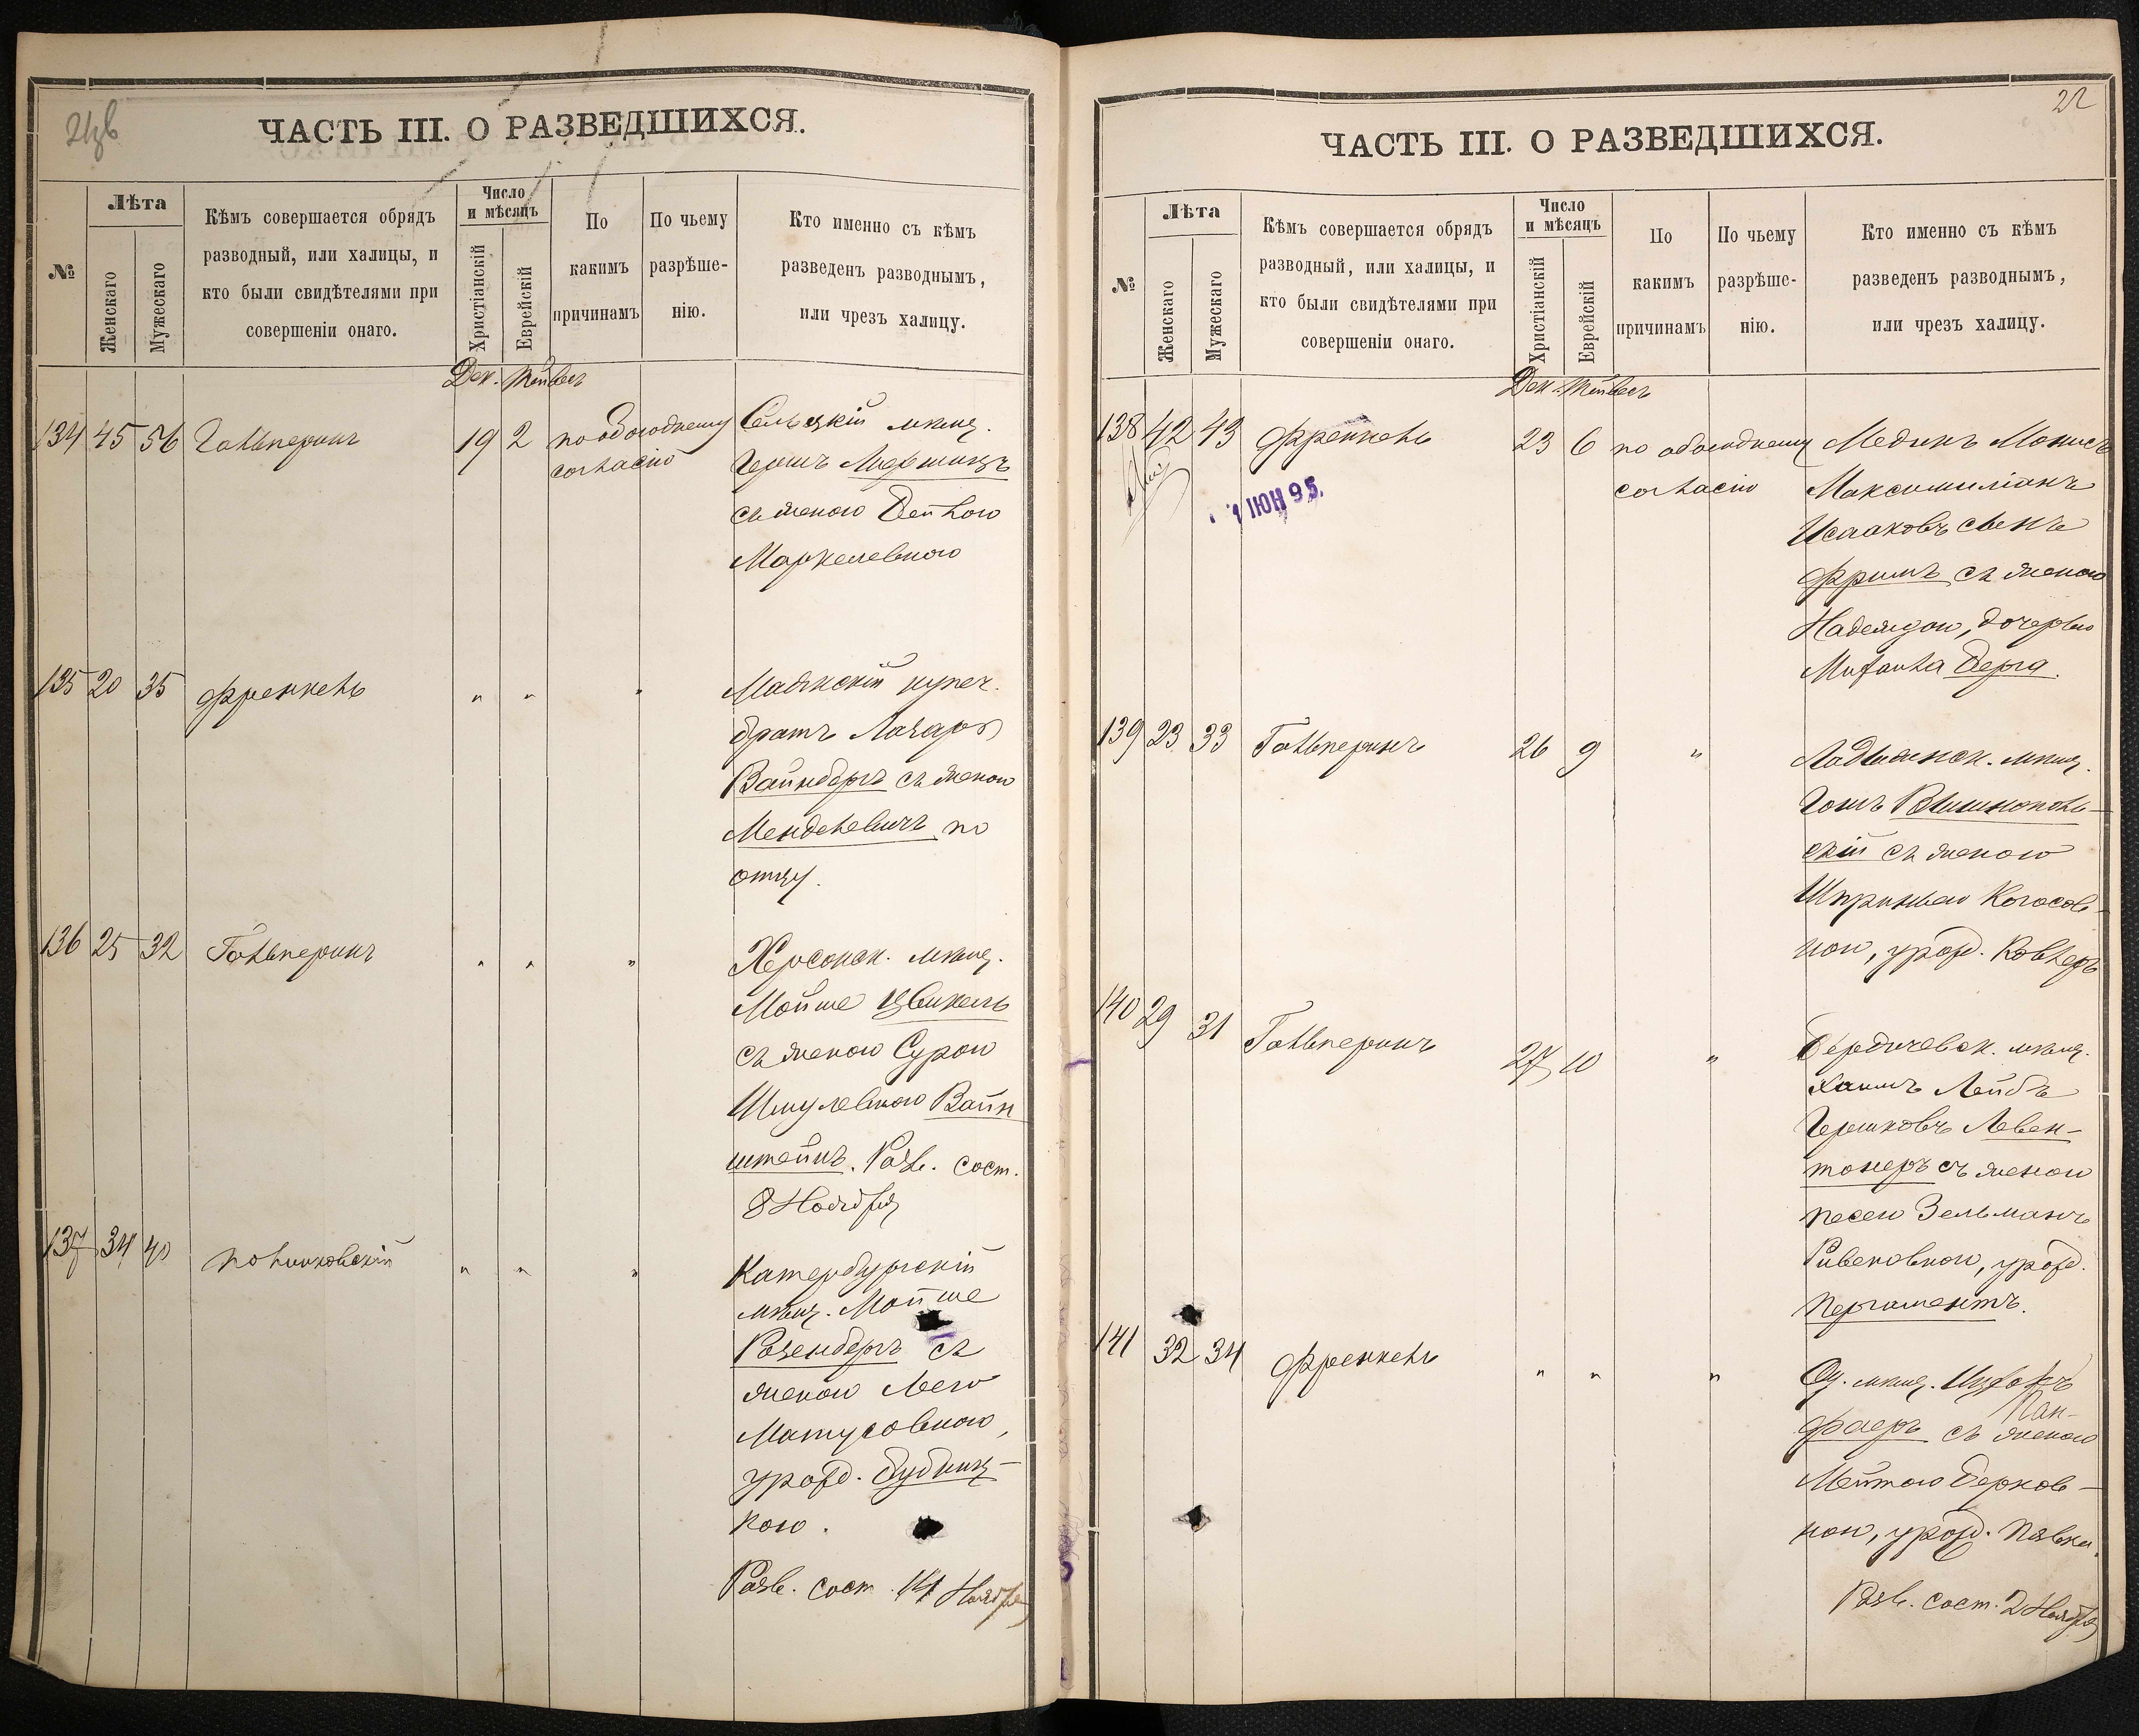 21об
ЧАСТЬ III. О РАЗВЕДШИХСЯ.
№
Лѣта
Женскаго
Мужескаго
Кѣмъ совершается обрядъ
разводный, или халицы, и
кто были свидѣтелями при
совершеніи онаго.
Число
и мѣсяцъ
Христіанскій
Еврейскій
По
какимъ
причинамъ
По чьему
разрѣше-
нію.
Кто именно съ кѣмъ
разведенъ разводнымъ,
или чрезъ халицу.
Дек. Тейвесъ
134 45 56 Гальперинъ 19 2 по обоюдному
согласію
мѣщ.
Гершъ
съ женою Бейлою
135 20 35 Френкель " " "
Маякскій купеч.
братъ Лазарь
Вайнбергъ съ женою
Менделевичъ по
отцу.
136 25 32 Гальперинъ " " "
Херсонск. мѣщ.
Мойше Цвикель
съ женою Сурою
Шмулевною Вайн
штейнъ. Разв. сост.
8 Ноября
137 34 40 Полинковскій " " "
Катербургскій
мѣщ. Мойше
Розенбергъ съ
женою Леею
Матусовною,
урожд. Дубниц-
кою.
Разв. сост. 14 Ноября
22
ЧАСТЬ III. О РАЗВЕДШИХСЯ.
№
Лѣта
Женскаго
Мужескаго
Кѣмъ совершается обрядъ
разводный, или халицы, и
кто были свидѣтелями при
совершеніи онаго.
Число
и мѣсяцъ
Христіанскій
Еврейскій
По
какимъ
причинамъ
По чьему
разрѣше-
нію.
Кто именно съ кѣмъ
разведенъ разводнымъ,
или чрезъ халицу.
Дек. Тейвесъ
138 42 43 Френкель 23 6 по обоюдному
согласію
1 ИЮН 95.
Медикъ Монисъ
Максимиліанъ
Исааковъ сынъ
Фримъ съ женою
Надеждою, дочерью
Михаила Берга.
139 23 33 Гальперинъ 26 9 "
Ладыженск. мѣщ.
скій съ женою
Шпринцею
ною, урожд. Ковлеръ
140 29 31 Гальперинъ 27 10 "
Бердичевск. мѣщ.
Хаимъ Лейбъ
Гершковъ Левен-
тонеръ съ женою
Песею Зельманъ
Ривеновною, урожд.
Пергаментъ.
141 32 34 Френкель " " "
Од. мѣщ. Ицхокъ
Лан-
фаеръ съ женою
Мейтою Берков-
ною, урожд.
Разв. сост. 2 Ноября